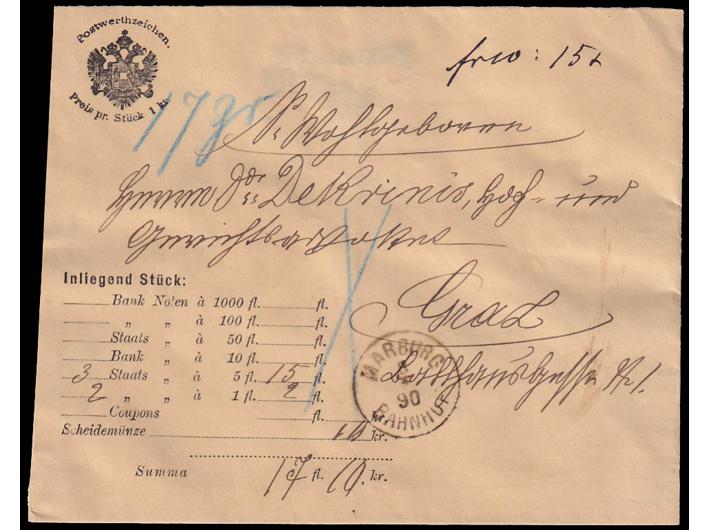 Postwerthzeichen.
Preis pr. Stück 1 kr.
frco: 15 x
17 gr
Sr Wohlgeboren
Herrn Ddr DeKrinis, Hof- und
Gerichtsadvokat
Graz
Inliegend Stück:
Bank Noten à 1000 fl. fl.
„ „ à 100 fl. „
Staats „ à 50 fl. „
Bank „ à 10 fl. „
3 Staats „ à 5 fl. 15 „
2 „ „ à 1 fl. 2 „
Coupons fl. kr.
Scheidemünze 10 kr.
Summa 17 fl. 10 kr.
MARBURG
90
BAHNHOF